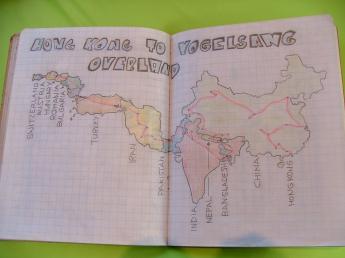 HONG KONG TO VOGELSANG
OVERLAND
SWITZERLAND
AUSTRIA
HUNGARY
ROMANIA
BULGARIA
TURKEY
IRAN
PAKISTAN
INDIA
NEPAL
BANGLADESH
CHINA
HONG KONG